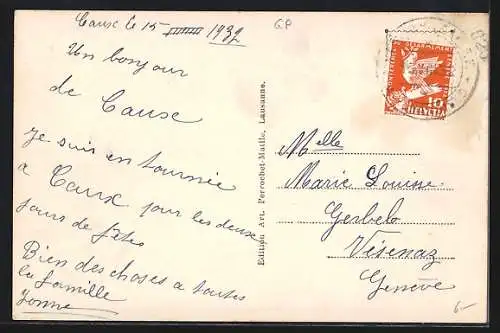 Caux le 15 1932
GP
Un bonjour
de Cause
je suis en tournée
a Caux pour les deux
jours de fêtes
Bien des choses a toutes
la famille
Yonne
Edition Art. Perrochet-Matile, Lausanne.
10
HELVETIA
Melle
Marie Louise
Gerbel
Vésenaz
Genève
6-